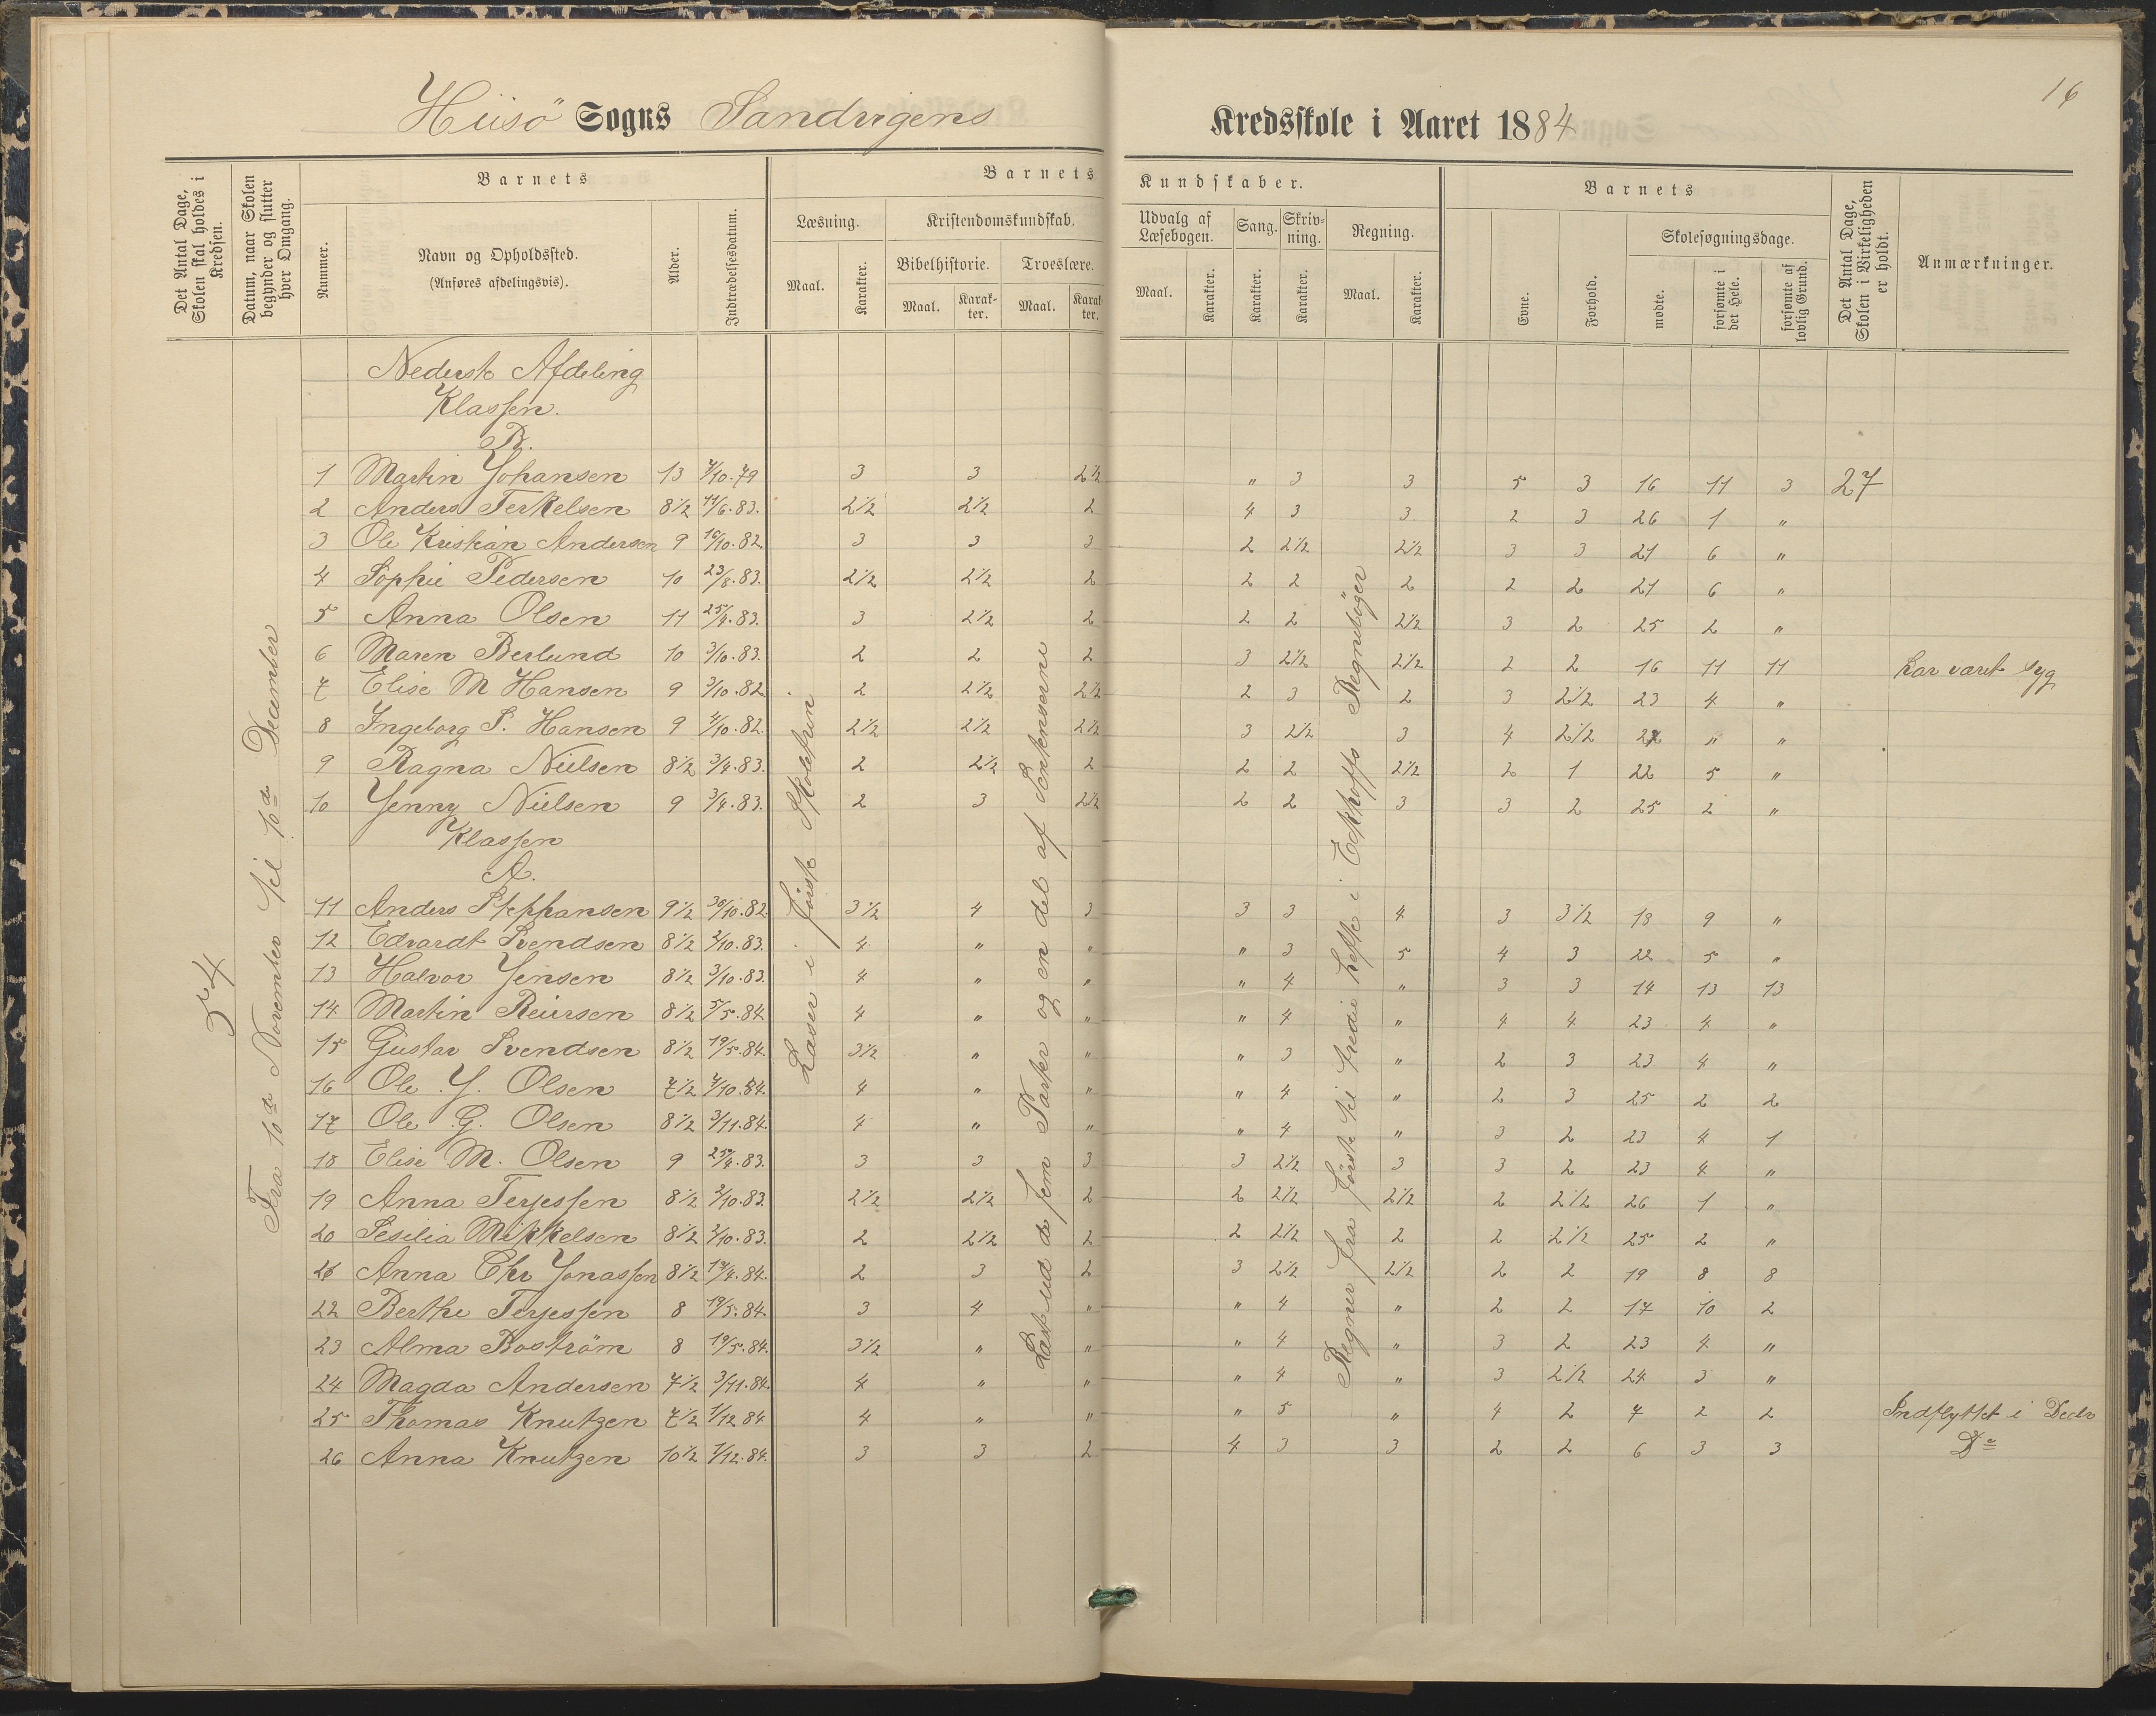 16
Hiisö Sogns Sandvigens Kredsskole i Aaret 1884
Det Antal Dage, Skolen skal holdes i Kredsen.
Datum, naar Skolen begynder og slutter hver Omgang.
Barnets
Nummer.
Navn og Opholdssted.
(Anføres afdelingsvis).
Alder.
Indtrædelsesdatum.
Barnets Kundskaber.
Læsning.
Maal.
Karakter.
Kristendomskundskab.
Bibelhistorie.
Maal.
Karakter.
Troeslære.
Maal.
Karakter.
Udvalg af Læsebogen.
Maal.
Karakter.
Sang.
Karakter.
Skrivning.
Karakter.
Regning.
Maal.
Karakter.
Barnets
Evne.
Forhold.
Skolesøgningsdage.
mødte.
forsømte i det Hele.
forsømte af lovlig Grund.
Det Antal Dage, Skolen i Virkeligheden er holdt.
Anmærkninger.
54
Fra 10de November til 10de December
Læser i første Skoletrin
Læst ud de fem Parter og en del af Sentenserne
Regner fra første til tredie hefte i Eckhoffs Regnebøger
Nederste Afdeling
Klassen.
B.
1 Martin Johansen 13 7/10.79 3 3 2 1/2 " 3 3 5 3 16 11 3 27
2 Anders Terkelsen 8 1/2 11/6.83. 2 1/2 2 1/2 2 4 3 3 2 3 26 1 "
3 Ole Kristian Andersen 9 10/10.82 3 3 3 2 2 1/2 2 1/2 3 3 21 6 "
4 Sophie Pedersen 10 23/8.83. 2 1/2 2 1/2 2 2 2 2 2 2 21 6 "
5 Anna Olsen 11 25/4.83. 3 2 1/2 2 2 2 2 1/2 3 2 25 2 "
6 Maren Berlund 10 3/10.83. 2 2 2 3 2 1/2 2 1/2 2 2 16 11 11 har været syg
7 Elise M Hansen 9 3/10.82 2 2 1/2 2 1/2 2 3 2 3 2 1/2 23 4 "
8 Ingeborg S. Hansen 9 4/10.82. 2 1/2 2 1/2 2 1/2 3 2 1/2 3 4 2 1/2 27 " "
9 Ragna Nielsen 8 1/2 3/4.83. 2 2 1/2 2 2 2 2 1/2 2 1 22 5 "
10 Jenny Nielsen 9 3/4.83. 2 3 2 1/2 2 2 3 3 2 25 2 "
Klassen
A.
11 Anders Stephansen 9 1/2 30/10.82. 3 1/2 4 3 3 3 4 3 3 1/2 18 9 "
12 Edvardt Svendsen 8 1/2 2/10.83. 4 " " " 3 5 4 3 22 5 "
13 Halvor Jensen 8 1/2 3/10.83 4 " " " 4 " 3 3 14 13 13
14 Martin Reiersen 8 1/2 5/5.84 4 " " " 4 " 4 4 23 4 "
15 Gustav Svendsen 8 1/2 19/5.84. 3 1/2 " " " 3 " 2 3 23 4 "
16 Ole J. Olsen 7 1/2 7/10.84. 4 " " " 4 " 2 3 25 2 2
17 Ole G. Olsen 8 1/2 3/11.84. 4 " " " 4 " 3 2 23 4 1
18 Elise M. Olsen 9 25/4.83. 3 3 3 3 2 1/2 3 3 2 23 4 "
19 Anna Terjessen 8 1/2 2/10.83. 2 1/2 2 1/2 2 2 2 1/2 2 1/2 2 2 1/2 26 1 "
20 Sesilia Mikkelsen 8 1/2 2/10.83. 2 2 1/2 2 2 2 1/2 2 2 2 1/2 25 2 "
21 Anna Chr Jonassen 8 1/2 17/4.84. 2 3 2 3 2 1/2 2 1/2 2 2 19 8 8
22 Berthe Terjessen 8 19/5.84. 3 4 " " 4 " 2 2 17 10 2
23 Alma Boström 8 19/5.84. 3 1/2 " " " 4 " 3 2 23 4 "
24 Magda Andersen 7 1/2 3/11.84. 4 " " " 4 " 3 2 1/2 24 3 "
25 Thomas Knutzen 7 1/2 1/12 84 4 " " " 5 " 4 2 7 2 2 Indflyttet i Decbr
26 Anna Knutzen 10 1/2 1/12.84. 3 3 2 4 3 3 2 2 6 3 3 Do